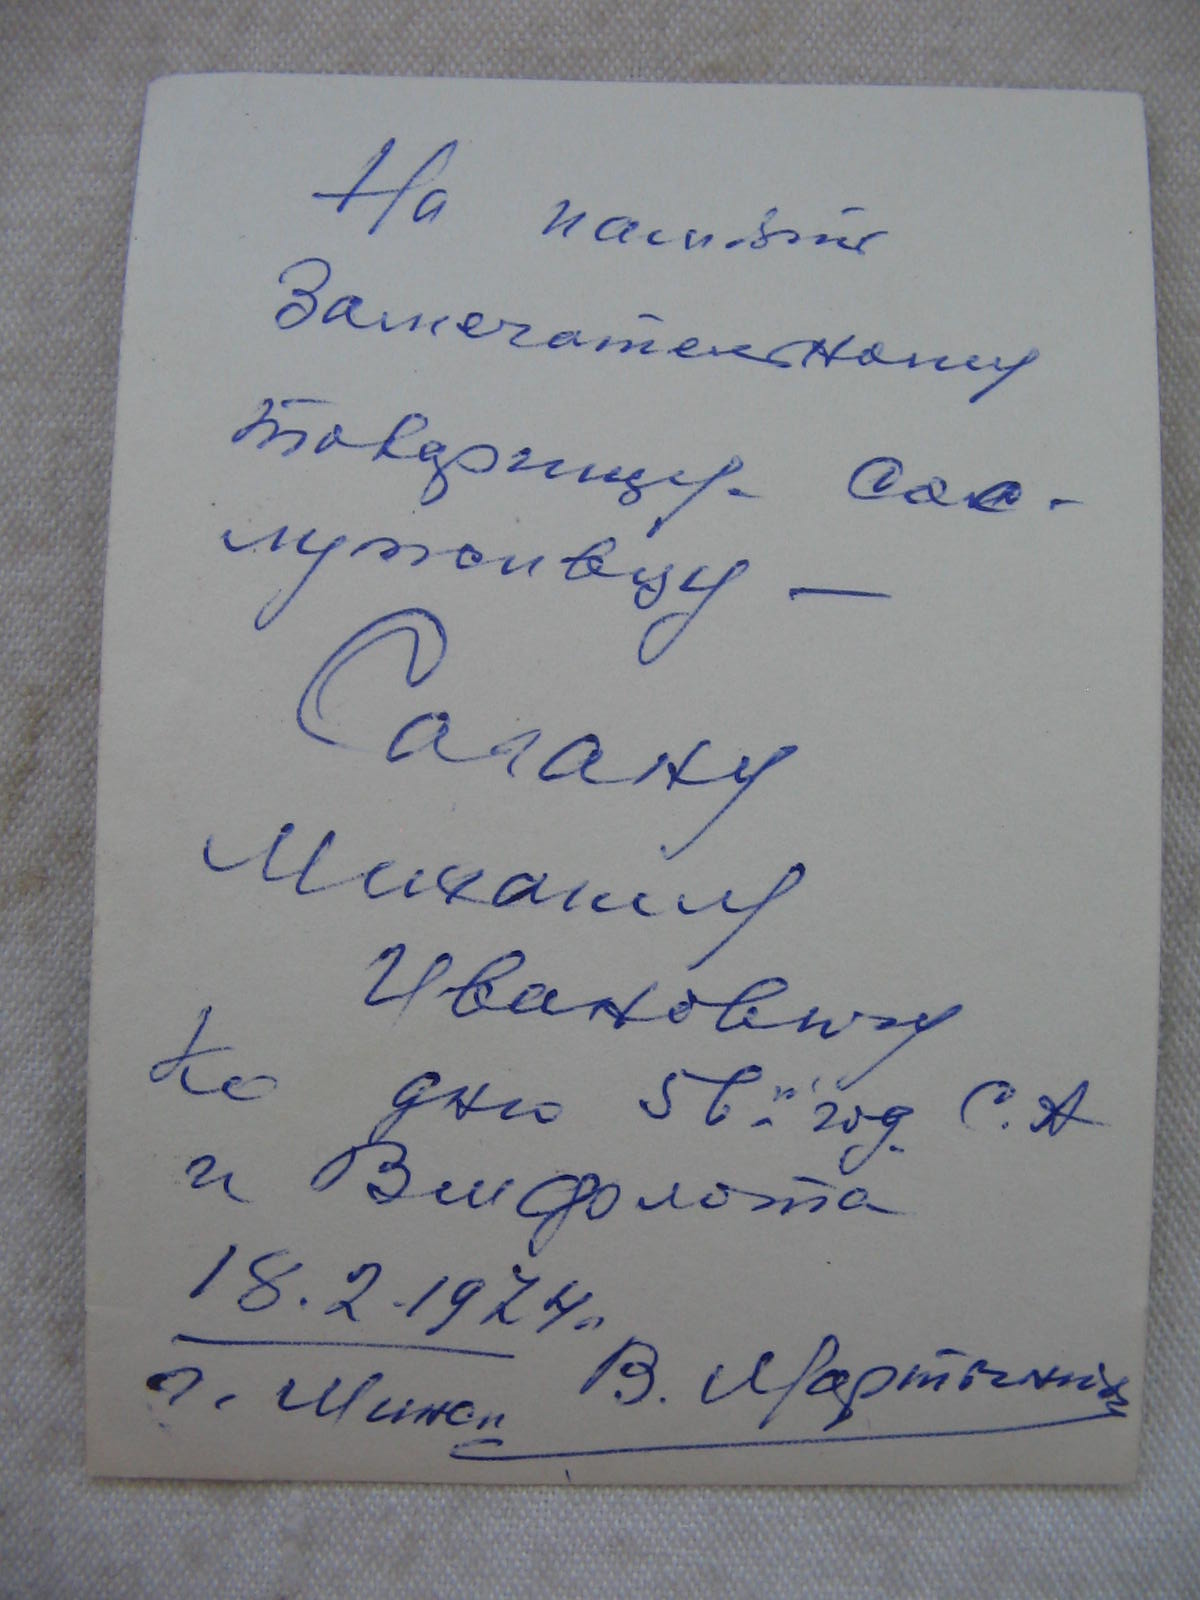 На память
Замечательному
товарищу- сос-
луживцу —
Сагану
Михаилу
Ивановичу
Ко дню 56й год. С.А
и ВМфлота
18.2.1974г.
г. Минск В. Мартынчик